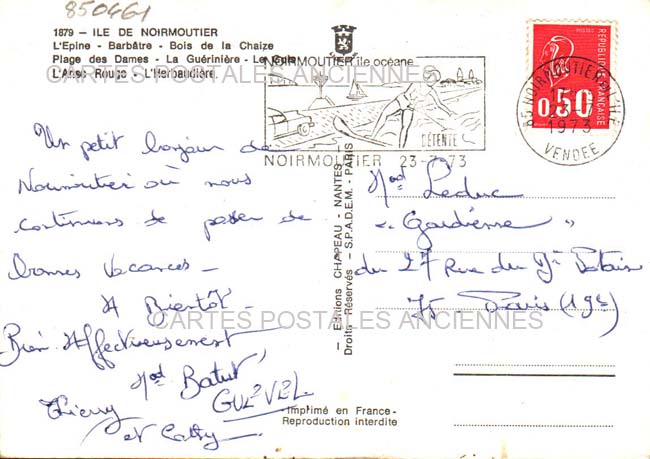 850461
1879 - ILE DE NOIRMOUTIER
L'Epine - Barbâtre - Bois de la Chaize
Plage des Dames - La Guérinière - Le Gois
L'Anse Rouge - L'Herbaudière.
CARTES POSTALES ANCIENNES
NOIRMOUTIER île océane
DÉTENTE
NOIRMOUTIER 23-7-73
85 NOIRMOUTIER
1973
VENDEE
0,50
REPUBLIQUE FRANÇAISE
Un petit bonjour de
Noirmoutier où nous
continuons de passer de
bonnes vacances -
A Bientôt -
Bien Affectueusement
Batut
Thierry
et Cathy
GUEVEL
- Editions CHAPEAU - NANTES -
Droits Réservés - S.P.A.D.E.M. - PARIS
Leduc
"Gardienne"
du 27 Rue du
75 Paris (19e)
CARTES POSTALES ANCIENNES
-Imprimé en France-
Reproduction interdite